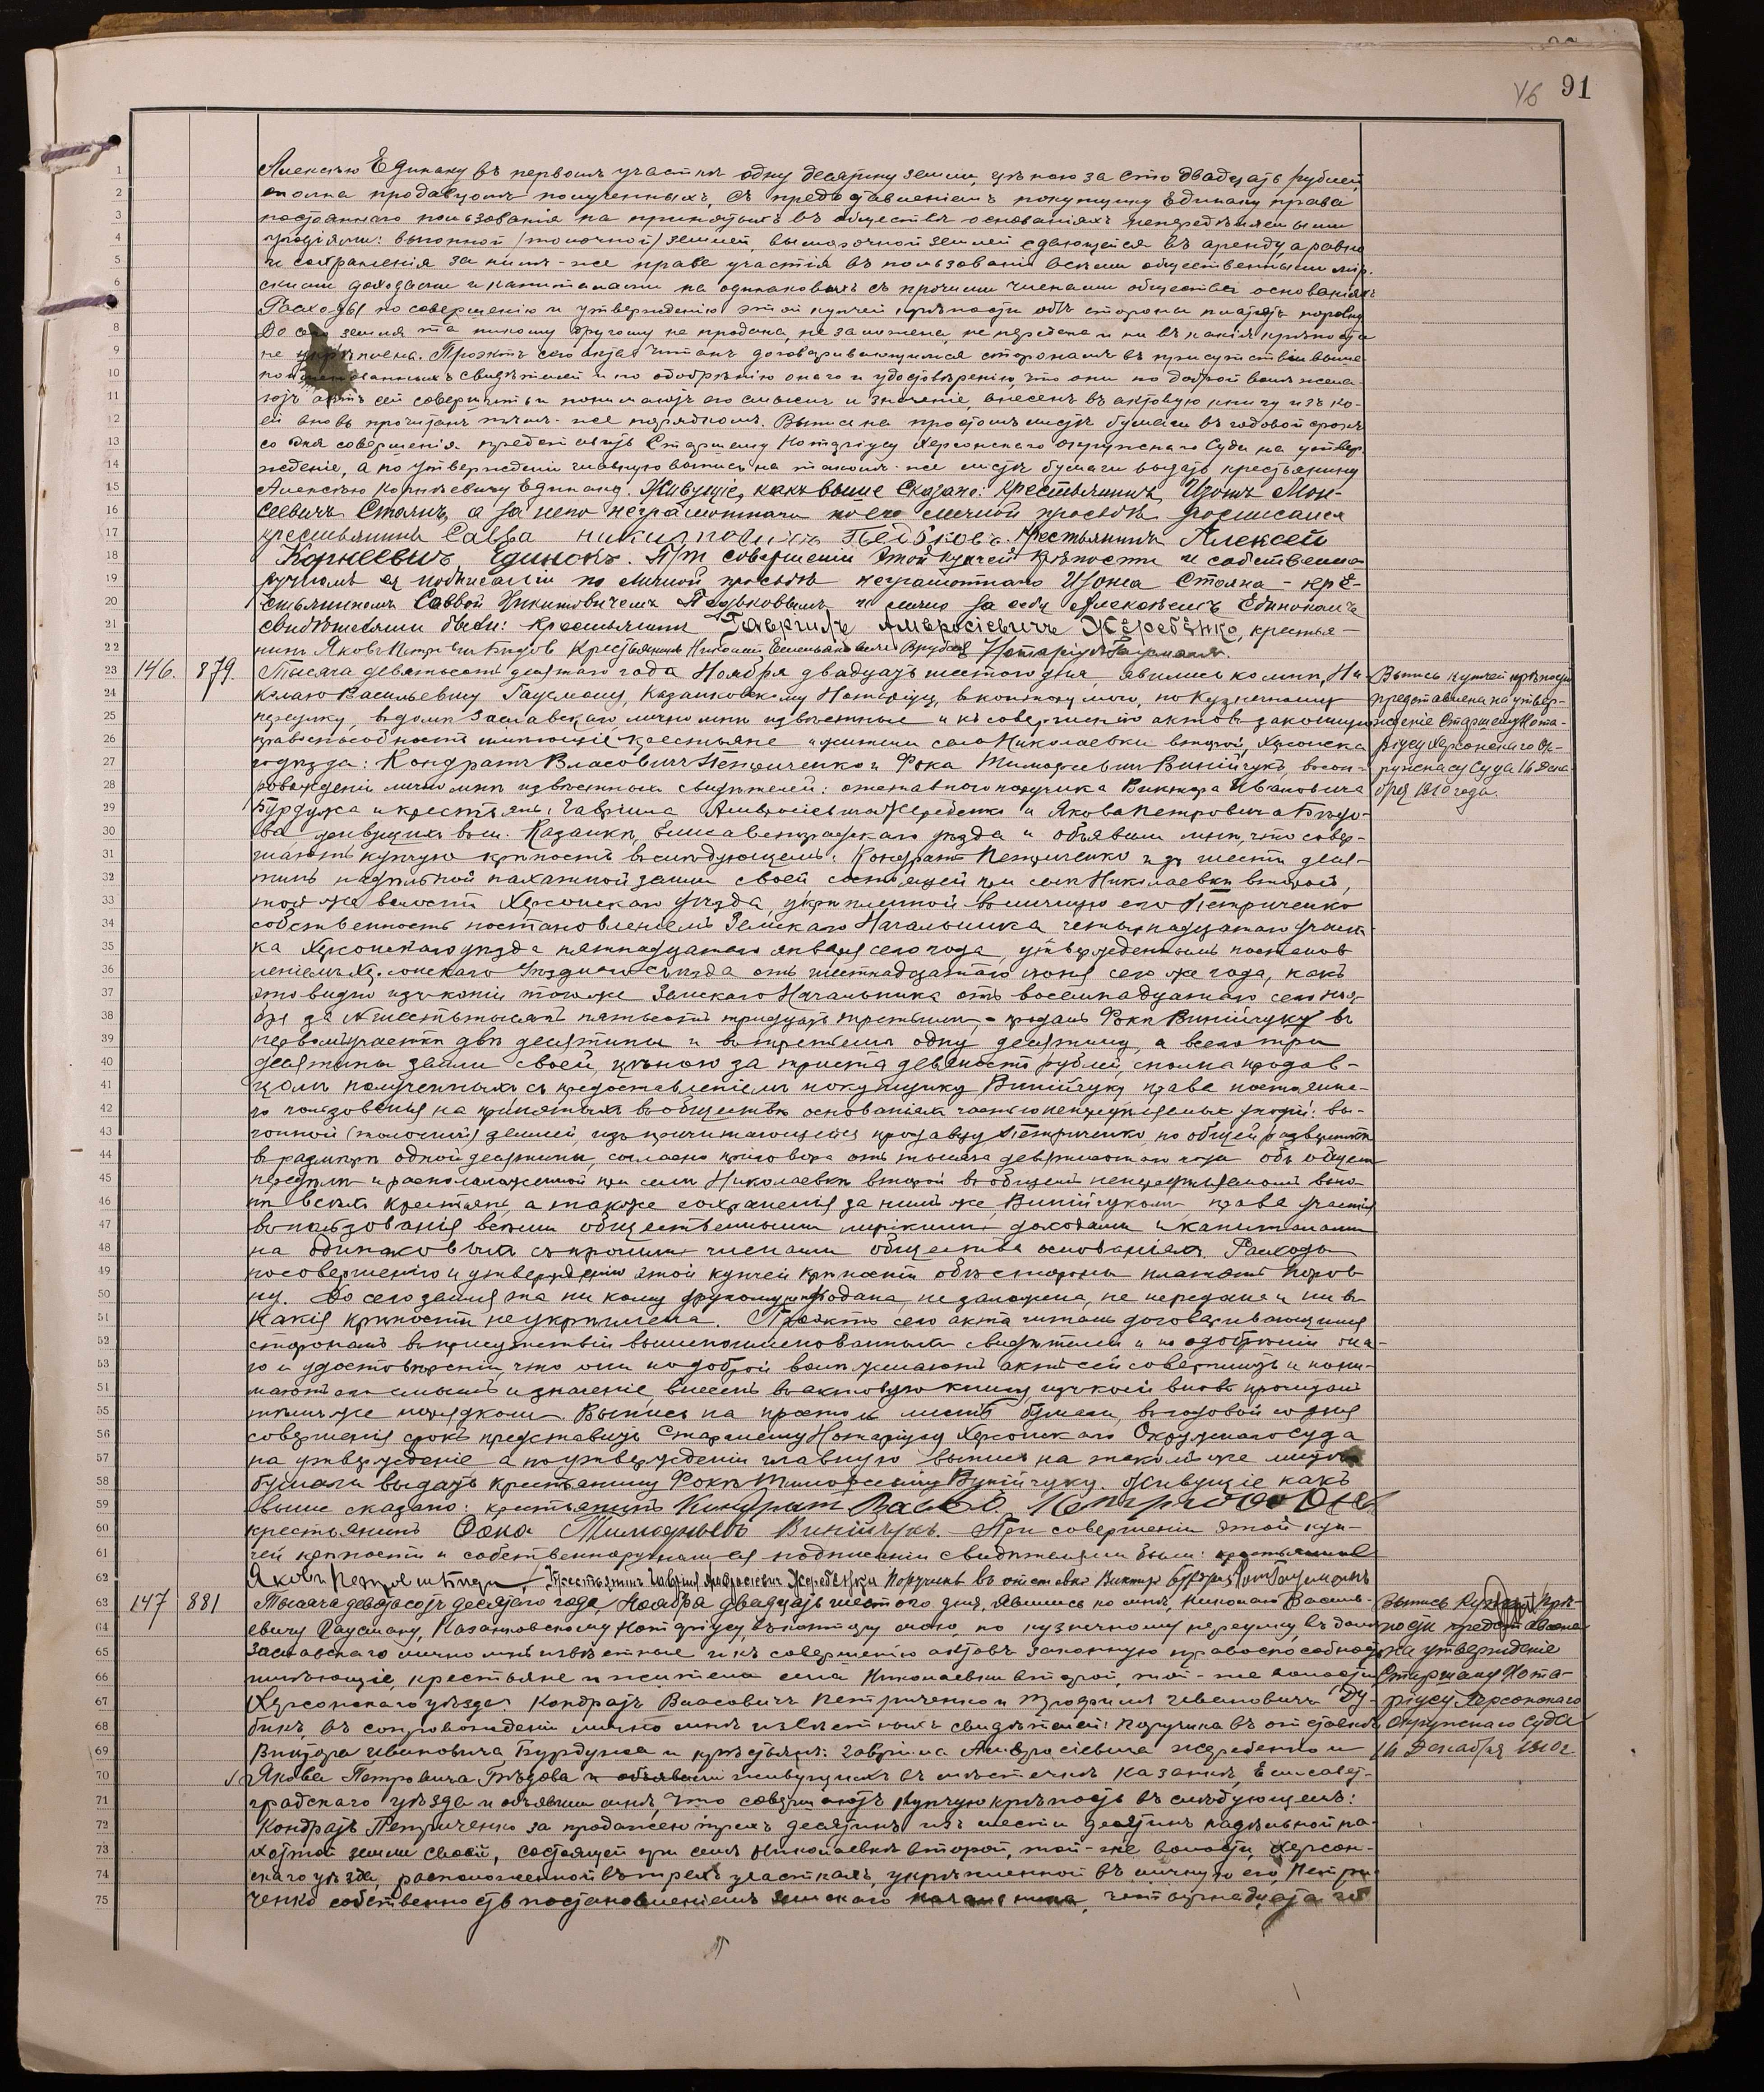 91
Алексѣю Единаку въ первомъ участкѣ одну десятину земли, цѣною за сто двадцать рублей,
сполна продавцомъ полученныхъ, съ предоставленіемъ покупщику Единаку права
постояннаго пользованія на принятыхъ въ обществѣ основаніяхъ непередѣляемыми
угодіями: выгонной /толочной/ землей, вымарочной землей сдающейся въ аренду, а равно
и сохраненія за нимъ-же права участія въ пользованіи всѣми общественными мір-
скими доходами и капиталами на одинаковыхъ съ прочими членами общества основаніяхъ
Расходы по совершенію и утвержденію этой купчей крѣпости обѣ стороны платятъ поровну
До сего земля та никому другому не продана, не заложена, не передана и ни въ какія крѣпости
не укрѣплена. Проэктъ сего акта читанъ договаривающимся сторонамъ въ присутствіи выше
поименованныхъ свидѣтелей и по одобренію онаго и удостовѣренію, что они по доброй волѣ жела-
ютъ актъ сей совершить и понимаютъ его смыслъ и значеніе, внесенъ въ актовую книгу изъ ко-
ей вновь прочитанъ тѣмъ-же порядкомъ. Выпись на простомъ листѣ бумаги въ годовой срокъ
со дня совершенія представить Старшему Нотаріусу Херсонскаго Окружнаго Суда на утвер
жденіе, а по утвержденіи главную выпись на такомъ-же листѣ бумаги выдать крестьянину
Алексѣю Корнѣевичу Единаку. Живущіе, какъ выше сказано: Крестьянинъ Изотъ Мои-
сеевичъ Стоянъ, а за него неграмотнаго по его личной просьбѣ росписался
крестьянинъ Савва никитовичъ Педьковъ. Крестьянинъ Алексей
Корнеевичъ Единокъ. При совершеніи этой купчей крѣпости и собственно
ручномъ ея подписаніи по личной просьбѣ неграмотнаго Изота Стояна - кре-
стьяниномъ Саввой Никитовичемъ Педьковымъ и лично за себя Алексѣемъ Единокомъ
свидѣтелями были: Крестьянинъ Гавріилъ Амвросіевичъ Жеребенко, крестья-
нинъ Яковъ Петровичъ Бѣдов Крестьянинъ Николай Емельяновичъ Нотаріусъ Гаусманъ.
146. 879. Тысяча девятьсотъ десятаго года Ноября двадцать шестого дня, явились ко мнѣ, Ни
колаю Васильевичу Гаусману, Казанковскому Нотаріусу, въ контору мою, по Кузнечному
переулку, въ домѣ Заславскаго лично мнѣ извѣстные и къ совершенію актовъ законную
правоспособность имѣющіе крестьяне и жители села Николаевки второй, Херсонска
го уѣзда: Кондратъ Власовичъ Петриченко и Фока Тимофеевичъ Винійчукъ, въ соп-
ровожденіи лично мнѣ извѣстныхъ свидѣтелей: отставного поручика Виктора Ивановича
Бурдужа и крестьянъ: Гавріила Амвросіевича Жеребенко и Якова Петровича Бѣдо-
ва, живущихъ въ м. Казанкѣ, Елисаветградскаго уѣзда и объявили мнѣ, что совер-
шаютъ купчую крѣпость въ слѣдующемъ: Кондратъ Петриченко изъ шести деся-
тинъ надѣльной пахатной земли своей состоящей при селѣ Николаевкѣ второй,
той же волости Херсонскаго уѣзда, укрѣпленной въ личную его Петриченко
собственность постановленіемъ Земскаго Начальника четырнадцатаго участ-
ка Херсонскаго уѣзда пятнадцатаго января сего года, утвержденнымъ постанов
леніемъ Херсонскаго Уѣзднаго съѣзда отъ шестнадцатаго іюня сего же года, какъ
это видно изъ копіи того же Земскаго Начальника отъ восемнадцатаго сего ноя-
бря за № шесть тысячъ пятьсотъ тридцать третьимъ, - продалъ Фокѣ Винійчуку въ
первомъ участкѣ двѣ десятины и въ третьемъ одну десятину, а всего три
десятины земли своей, цѣною за триста девяносто рублей, сполна продав-
цомъ полученныхъ съ предоставленіемъ покупщику Винійчуку права постоянна-
го пользованія на принятыхъ въ обществѣ основаніяхъ частью непередѣляемыхъ угодій: вы-
гонной (толочной) землей, изъ причитающейся продавцу Петриченко, по общей развѣрсткѣ
въ размѣрѣ одной десятины, согласно приговора отъ тысяча девятисотаго года объ общем
передѣлѣ и расположенной при селѣ Николаевкѣ второй въ общей непередѣляемой выго-
нѣ всѣхъ крестьянъ, а также сохраненія за нимъ же, Винійчукомъ права участія
въ пользованіи всѣми общественными мірскими доходами и капиталами
на одинаковыхъ съ прочими членами общества основаніяхъ. Расходы
по совершенію и утвержденію этой купчей крѣпости обѣ стороны платятъ поров
ну. До сего земля та никому другому не продана, не заложена, не передана и ни въ
какія крѣпости не укрѣплена. Проэктъ сего акта читанъ договаривающимся
сторонамъ въ присутствіи вышепоименованныхъ свидѣтелей и по одобреніи она-
го и удостовѣреніи, что они по доброй волѣ желаютъ актъ сей совершить и пони-
маютъ его смыслъ и значеніе, внесенъ въ актовую книгу, изъ коей вновь прочитанъ
тѣмъ же порядкомъ. Выпись на простомъ листѣ бумаги, въ годовой со дня
совершенія срокъ представить Старшему Нотаріусу Херсонскаго Окружнаго Суда
на утвержденіе а по утвержденіи главную выпись на такомъ же листѣ
бумаги выдать крестьянину Фокѣ Тимофеевичу Винійчуку. Живущіе какъ
выше сказано: крестьянинъ Кондрат Петриченко
крестьянинъ Фока Тимофеевъ Винійчукъ. При совершеніи этой куп-
чей крѣпости и собственноручномъ ея подписаніи свидѣтелями были: крестьянинъ
Яковъ Петровичъ Бѣдов, Крестьянинъ Гавріил Амвросіевичъ Жеребенко Поручикъ въ отставкѣ Виктор Бурдужа Нот Гаусманъ
147 881 Тысяча девятьсотъ десятаго года, Ноября двадцать шестого дня, явились ко мнѣ, Николаю Василь-
евичу Гаусману, Казанковскому Нотаріусу, въ контору мою, по кузнечному переулку, въ домѣ
Заславскаго лично мнѣ извѣстные и къ совершенію актовъ законную правоспособность
имѣющіе, крестьяне и жители села Николаевки второй, той-же волости
Херсонскаго уѣзда Кондратъ Власовичъ Петриченко и Трофимъ Ивановичъ Ду-
бикъ, въ сопровожденіи лично мнѣ извѣстныхъ свидѣтелей: Поручика въ отставкѣ
Виктора Ивановича Бурдужа и крестьянъ: Гавріила Амвросіевича Жеребенко и
Якова Петровича Бѣдова и объявили живущихъ въ мѣстечкѣ Казанкѣ, Елисавет-
градскаго уѣзда и объявили мнѣ, что совершаютъ купчую крѣпость въ слѣдующемъ:
Кондратъ Петриченко за продажею трехъ десятинъ изъ шести десятинъ надѣльной па-
хатной земли своей, состоящей при селѣ Николаевкѣ второй, той-же волости, Херсон-
скаго уѣзда, расположенной въ трехъ участкахъ, укрѣпленной въ личную его, Петри-
ченко собственность постановленіемъ земскаго начальника, четырнадцатаго
Выпись купчей крѣпости
представлена на утвер-
жденіе Старшему Нота-
ріусу Херсонскаго Ок-
ружнаго Суда 16 Дека-
бря 1910 года.
Выпись купчей крѣ-
пости представлена
на утвержденіе
Старшему Нота-
ріусу Херсонскаго
Окружнаго Суда
16 Декабря 1910 г.